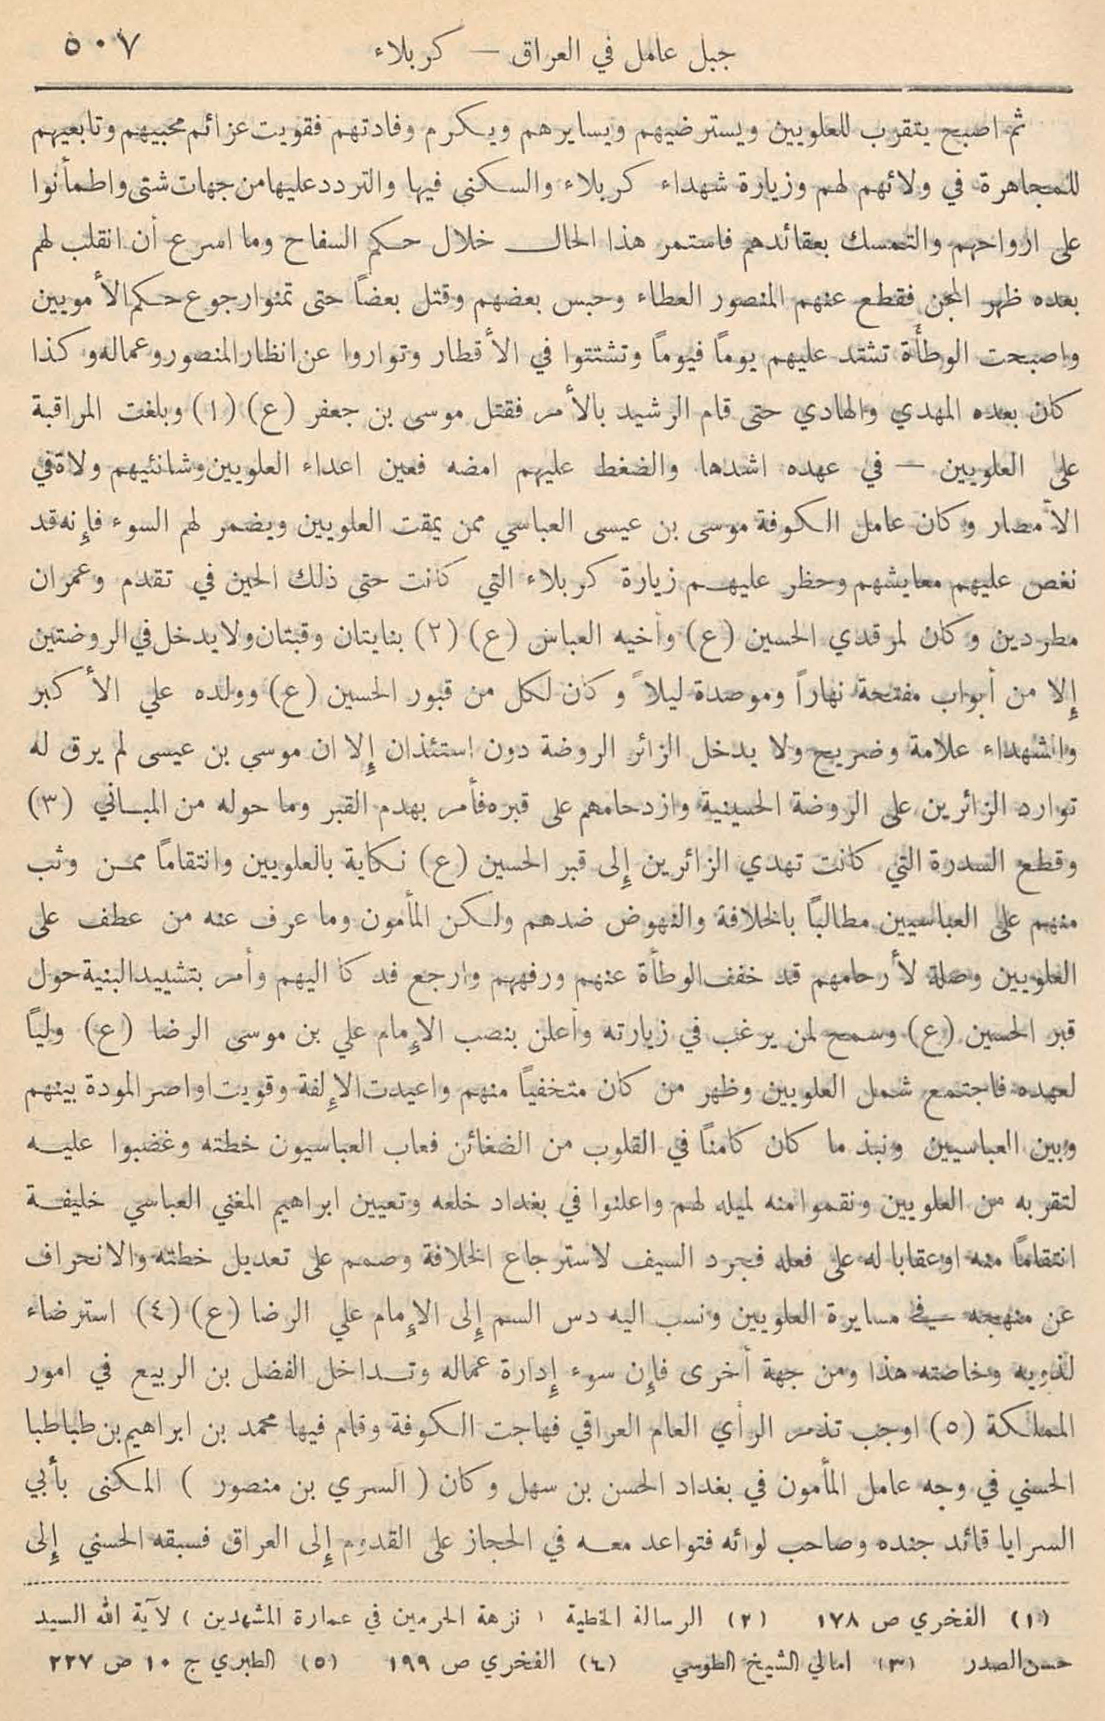 جبل عامل في العراق — كربلاء ٥٠٧
ثم اصبح يتقرب للعلويين ويسترضيهم ويسايرهم ويكرم وفادتهم فقويت عزائم محبيهم وتابعيهم
للمجاهرة في ولائهم لهم وزيارة شهداء كربلاء والسكنى فيها والتردد عليها من جهات شتى واطمأنوا
على ارواحهم والتمسك بعقائدهم فاستمر هذا الحال خلال حكم السفاح وما اسرع أن انقلب لهم
بعده ظهر المجن فقطع عنهم المنصور العطاء وحبس بعضهم وقتل بعضاً حتى تمنوا رجوع حكم الأمويين
واصبحت الوطأة تشتد عليهم يوماً فيوماً وتشتتوا في الأقطار وتواروا عن انظار المنصور وعماله وكذا
كان بعده المهدي والهادي حتى قام الرشيد بالأمر فقتل موسى بن جعفر (ع) (١) وبلغت المراقبة
على العلويين — في عهده اشدها والضغط عليهم امضه فعين اعداء العلويين وشانئيهم ولاة في
الأمصار وكان عامل الكوفة موسى بن عيسى العباسي ممن يمقت العلويين ويضمر لهم السوء فإنه قد
نغص عليهم معايشهم وحظر عليهم زيارة كربلاء التي كانت حتى ذلك الحين في تقدم وعمران
مطردين وكان لمرقدي الحسين (ع) وأخيه العباس (ع) (٢) بنايتان وقبتان ولا يدخل في الروضتين
إلا من أبواب مفتحة نهاراً وموصدة ليلاً وكان لكل من قبور الحسين (ع) وولده علي الأكبر
والشهداء علامة وضريح ولا يدخل الزائر الروضة دون استئذان إلا ان موسى بن عيسى لم يرق له
توارد الزائرين على الروضة الحسينية وازدحامهم على قبره فأمر بهدم القبر وما حوله من المباني (٣)
وقطع السدرة التي كانت تهدي الزائرين إلى قبر الحسين (ع) نكاية بالعلويين وانتقاماً ممن وثب
منهم على العباسيين مطالباً بالخلافة والنهوض ضدهم ولكن المأمون وما عرف عنه من عطف على
العلويين وصلة لأرحامهم قد خفف الوطأة عنهم ورفههم وارجع فدكا اليهم وأمر بتشييد البنية حول
قبر الحسين (ع) وسمح لمن يرغب في زيارته وأعلن بنصب الإمام علي بن موسى الرضا (ع) ولياً
لعهده فاجتمع شمل العلويين وظهر من كان متخفياً منهم واعيدت الإلفة وقويت اواصر المودة بينهم
وبين العباسيين ونبذ ما كان كامناً في القلوب من الضغائن فعاب العباسيون خطته وغضبوا عليه
لتقربه من العلويين ونقموا منه لميله لهم واعلنوا في بغداد خلعه وتعيين ابراهيم المغني العباسي خليفة
انتقاماً منه او عقابا له على فعله فجرد السيف لاسترجاع الخلافة وصمم على تعديل خطته والانحراف
عن منهجه في مسايرة العلويين ونسب اليه دس السم إلى الإمام علي الرضا (ع) (٤) استرضاء
لذويه وخاصته هذا ومن جهة أخرى فإن سوء إدارة عماله وتداخل الفضل بن الربيع في امور
المملكة (٥) اوجب تذمر الرأي العام العراقي فهاجت الكوفة وقام فيها محمد بن ابراهيم بن طباطبا
الحسني في وجه عامل المأمون في بغداد الحسن بن سهل وكان ( السري بن منصور ) المكنى بأبي
السرايا قائد جنده وصاحب لوائه فتواعد معه في الحجاز على القدوم إلى العراق فسبقه الحسني إلى
(١) الفخري ص ١٧٨ (٢) الرسالة الخطية ( نزهة الحرمين في عمارة المشهدين ) لآية الله السيد
حسن الصدر (٣) امالي الشيخ الطوسي (٤) الفخري ص ١٩٩ (٥) الطبري ج ١٠ ص ٢٢٧